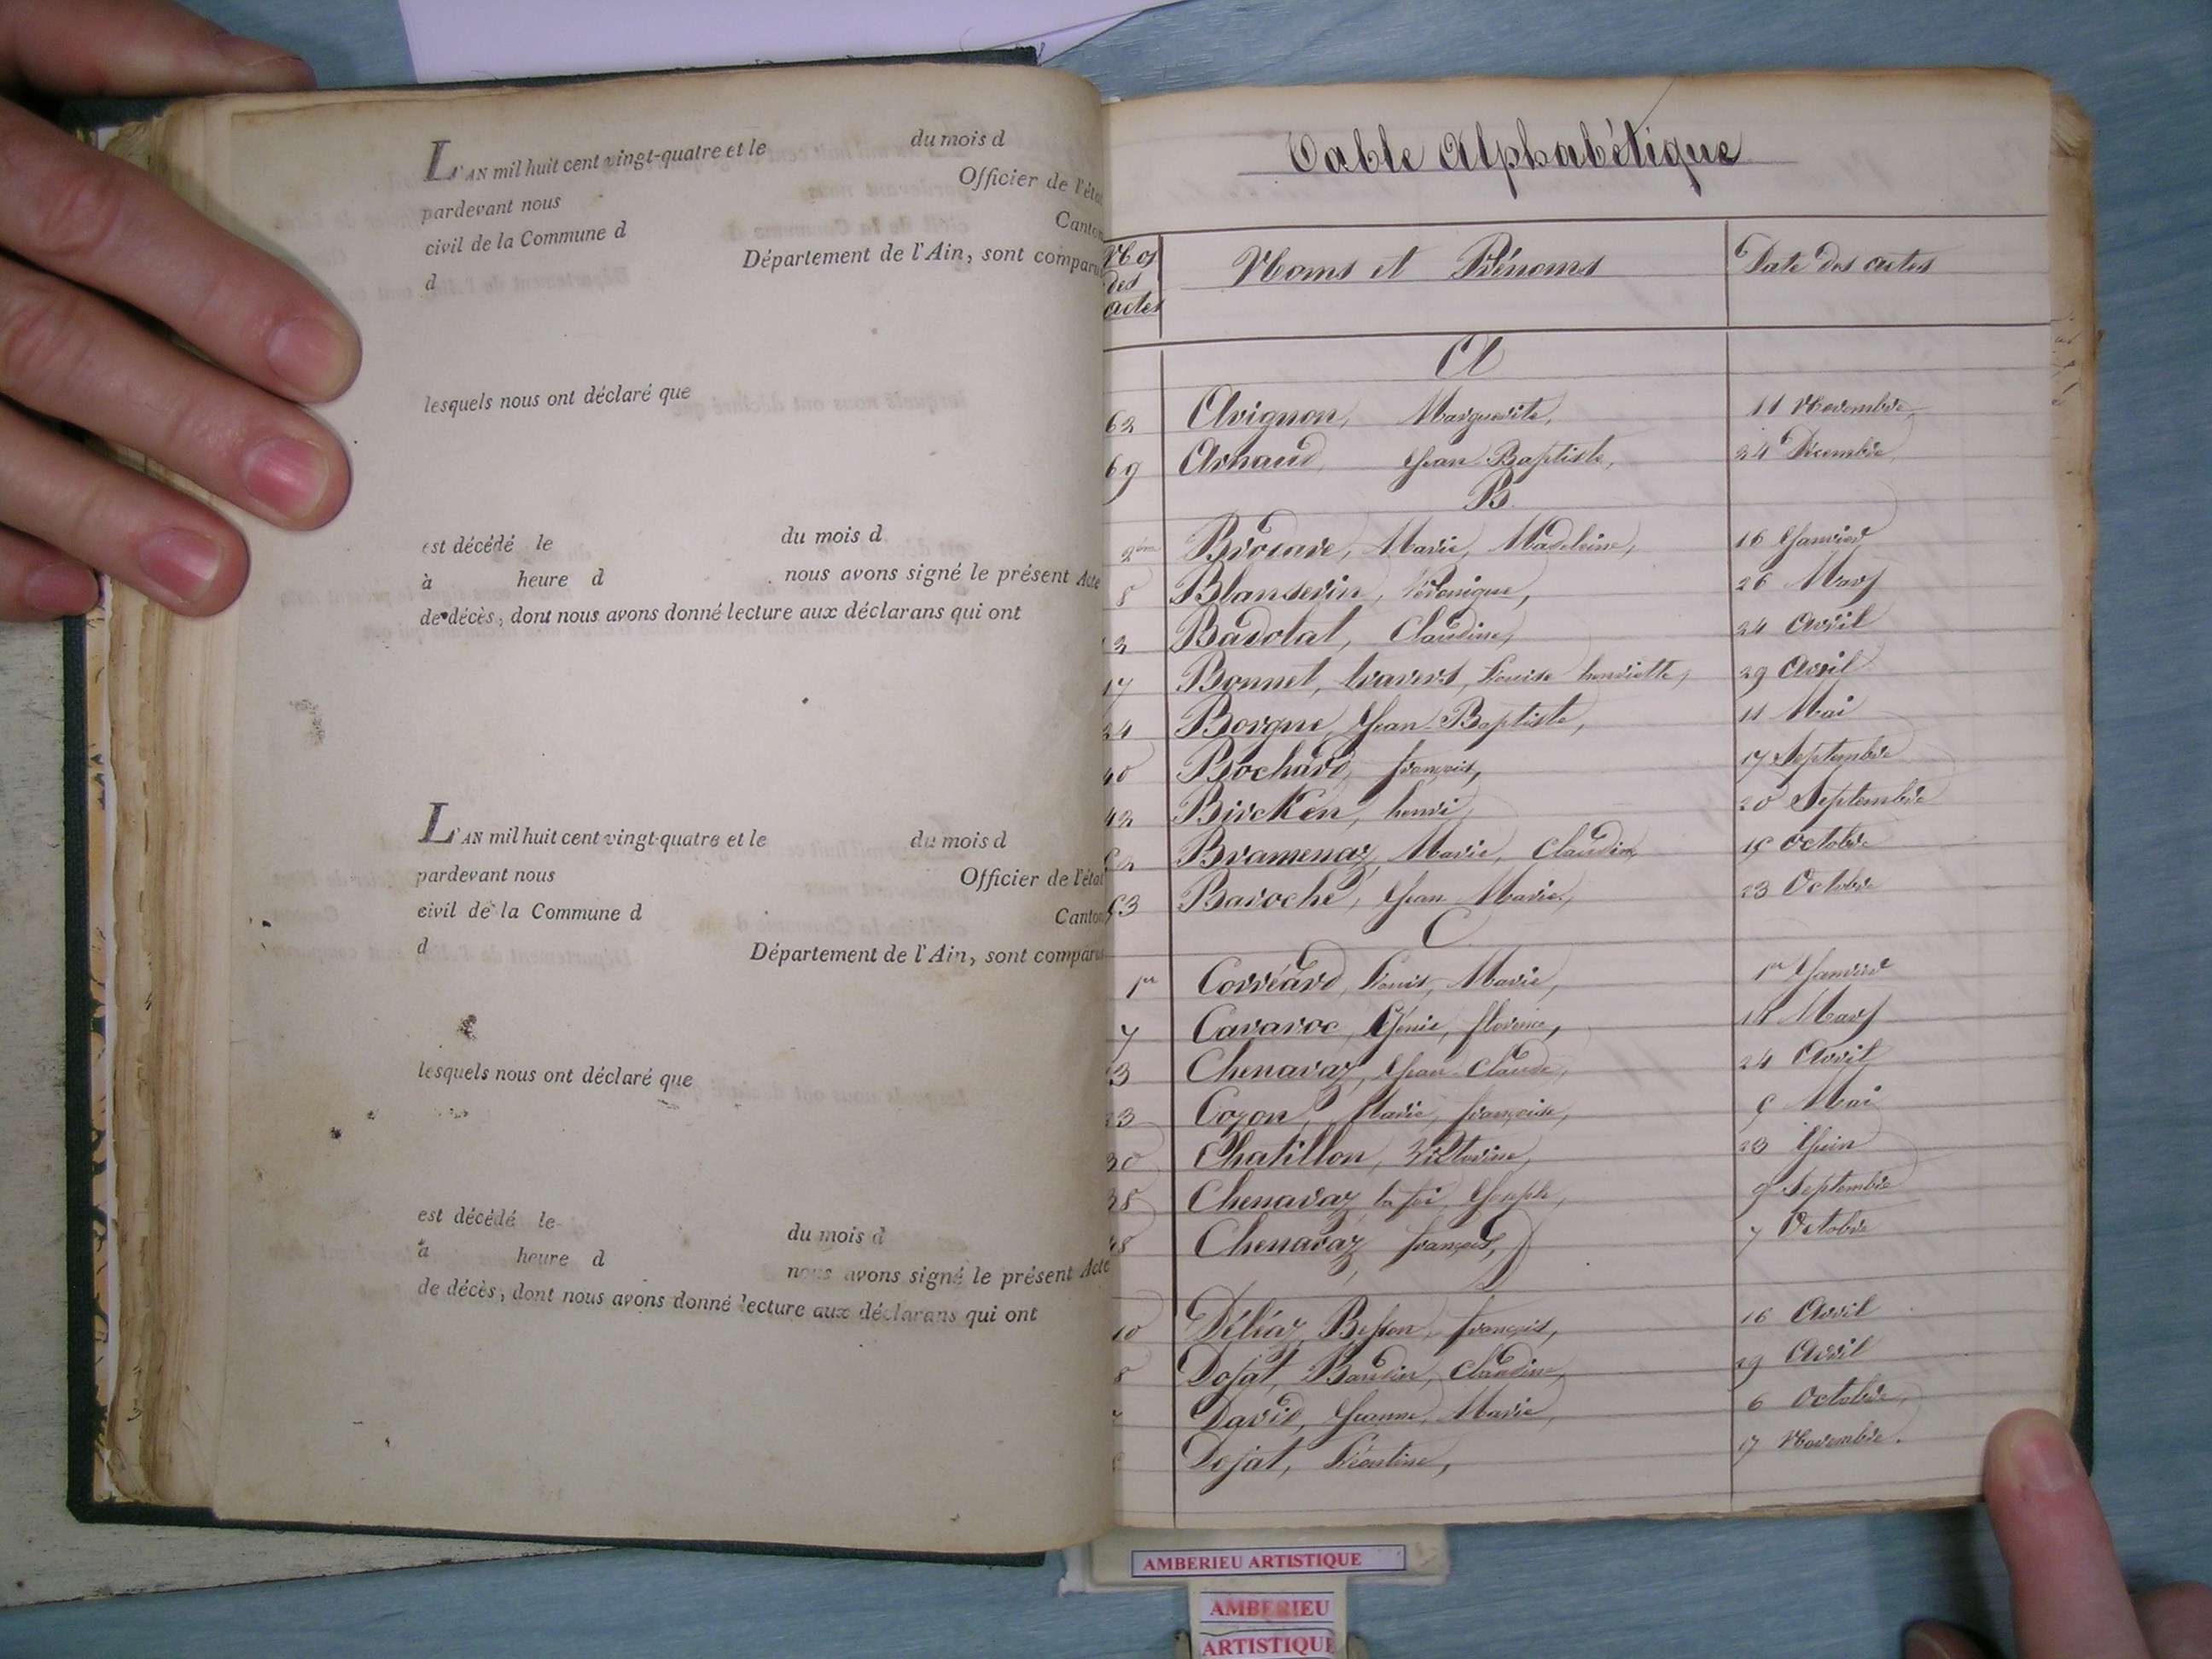 L'AN mil huit cent vingt-quatre et le du mois d
pardevant nous Officier de l'état
civil de la Commune d Canton
d Département de l'Ain, sont comparus
lesquels nous ont déclaré que
est décédé le du mois d
à heure d nous avons signé le présent Acte
de décès, dont nous avons donné lecture aux déclarans qui ont
L'AN mil huit cent vingt-quatre et le du mois d
pardevant nous Officier de l'état
civil de la Commune d Canton
d Département de l'Ain, sont comparus
lesquels nous ont déclaré que
est décédé le du mois d
à heure d nous avons signé le présent Acte
de décès, dont nous avons donné lecture aux déclarans qui ont
Table Alphabétique
Nos des actes
Noms et Prénoms
Date des actes
A
62 Avignon, Marguerite, 11 Novembre
69 Arnaud, Jean Baptiste, 24 Décembre
B.
2ème Brocard, Marie, Madeleine, 16 Janvier
8 Blanserin, Véronique, 26 Mars
Badolat, Claudine, 24 Avril
17 Bonnet, travers, Louise henriette, 29 Avril
24 Borgne, Jean-Baptiste, 11 Mai
40 Bochard, françois, 17 Septembre
42 Bircken, henri, 20 Septembre
52 Bramenaz, Marie, Claudine, 15 Octobre
53 Baroche, Jean Marie, 23 Octobre
C
1er Corréard, Louis, Marie, 1er Janvier
7 Cavaroc, florence, Mars
Chenavaz, Jean-Claude, 24 Avril
23 Cozon, Marie, françoise, 5 Mai
30 Chatillon, Victorine, 23 Juin
38 Chenavaz, Joseph, 9 Septembre
48 Chenavaz, françois, 7 Octobre
D
10 Déléaz, Besson, françois, 16 Avril
8 Dojat, Baudin, Claudine, 29 Avril
David, Jeanne, Marie, 6 Octobre,
Dojat, Léontine, 17 Novembre.
AMBERIEU ARTISTIQUE
AMBERIEU
ARTISTIQUE